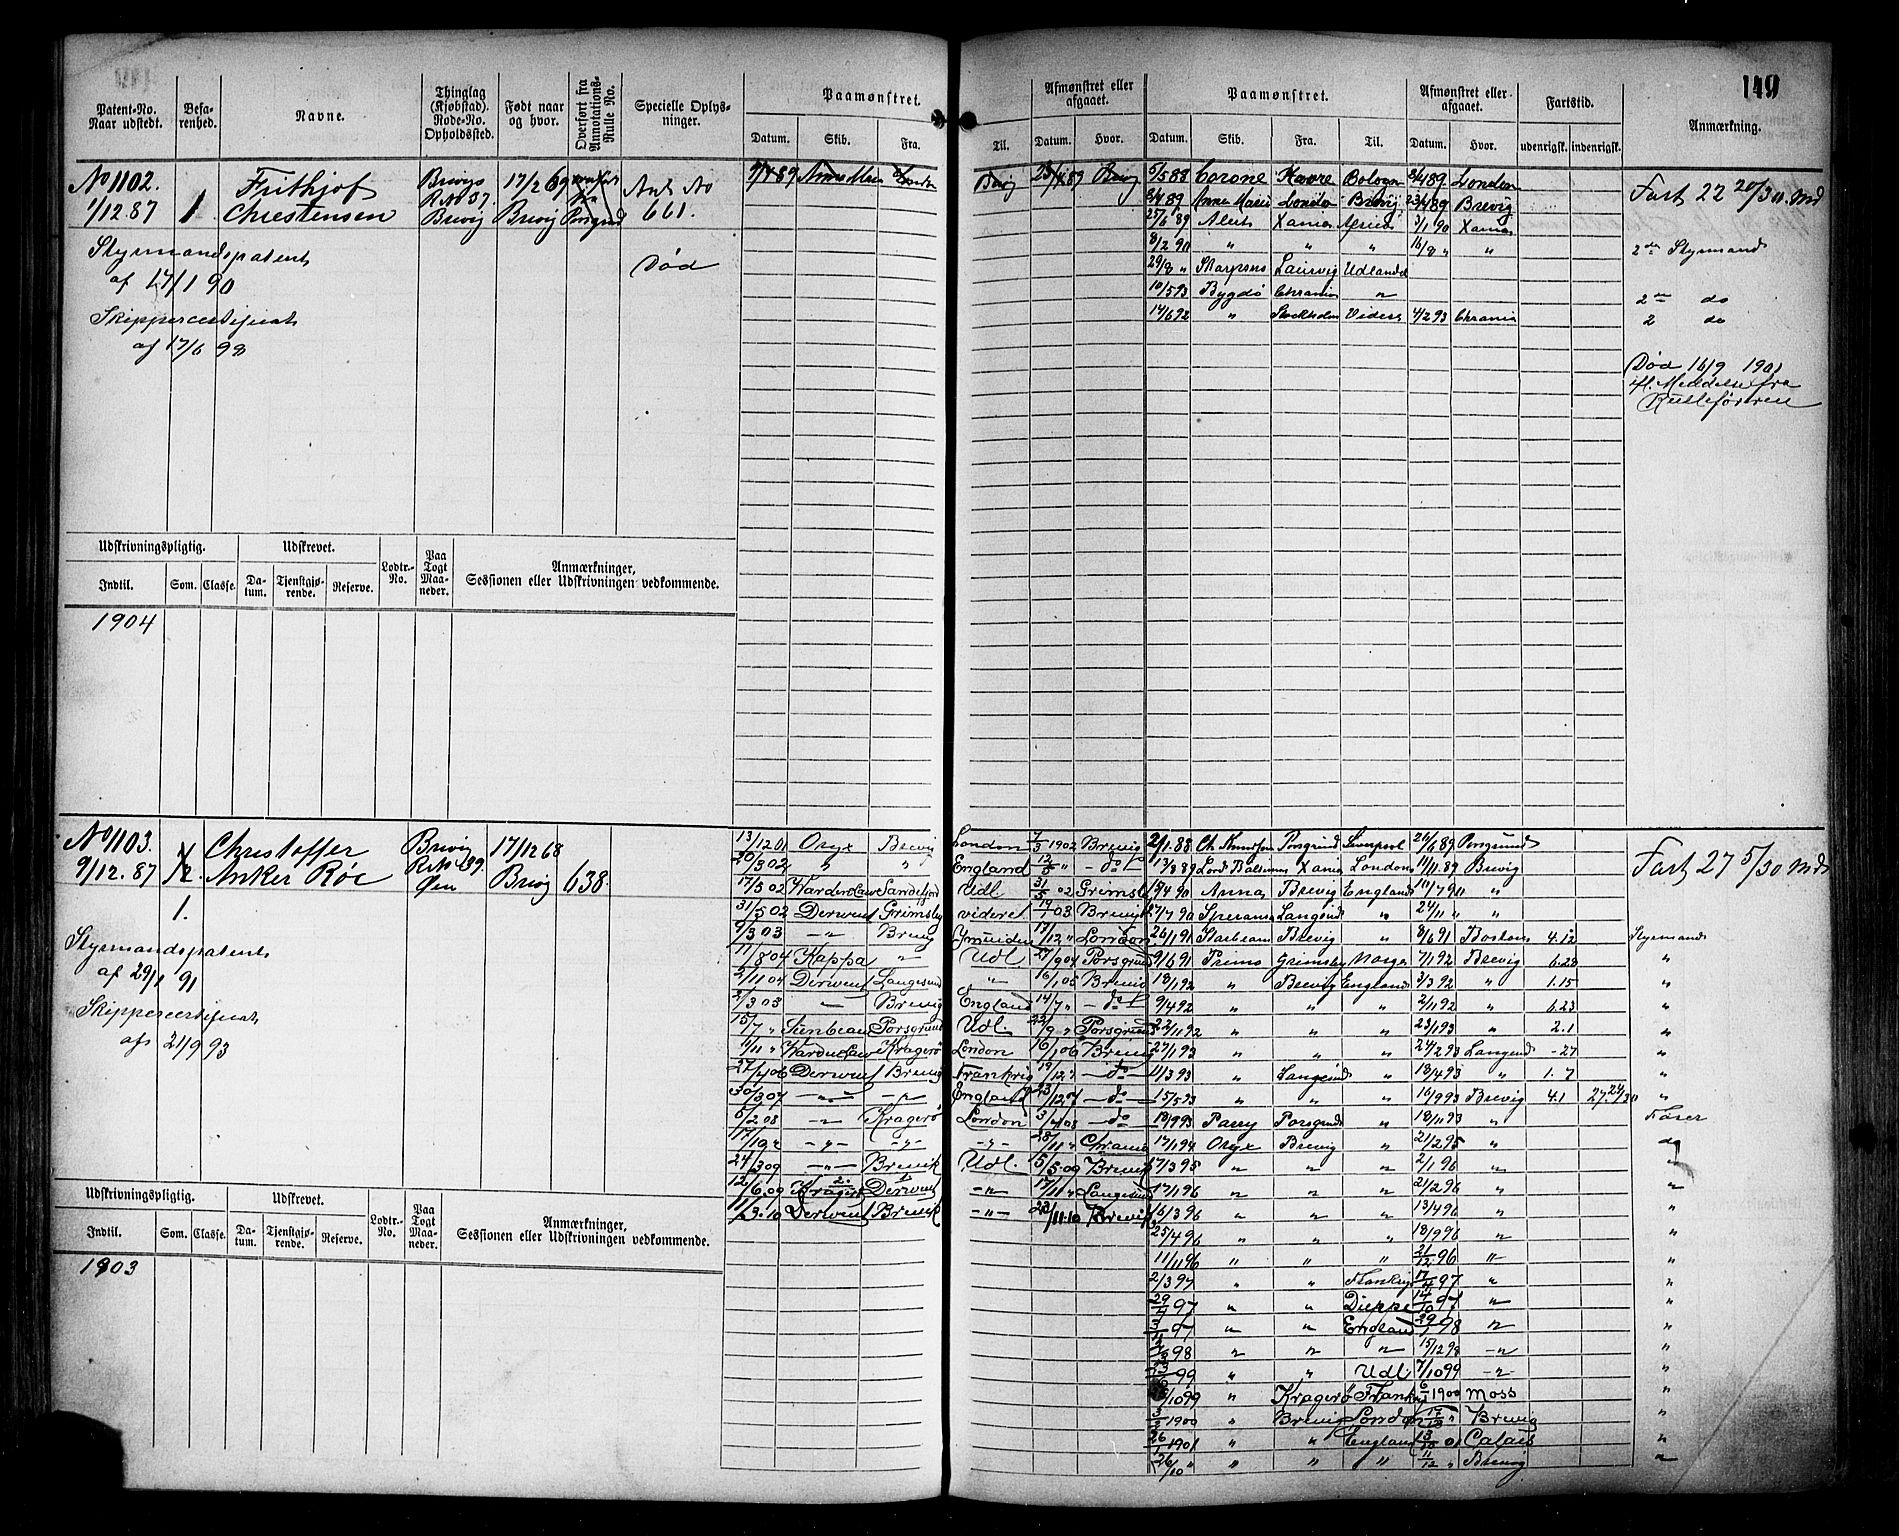 149
Patent-No. Naar udstedt.
Befarenhed.
Navne.
Thinglag (Kjøbstad). Rode-No. Opholdssted.
Født naar og hvor.
Overført fra Annotations-Rulle No.
Specielle Oplysninger.
Paamønstret.
Datum. Skib. Fra.
Til.
Afmønstret eller afgaaet.
Datum. Hvor.
Paamønstret.
Datum. Skib. Fra. Til.
Afmønstret eller afgaaet.
Datum. Hvor.
Fartstid.
udenrigsk. indenrigsk.
Anmærkning.
No 1102.
1/12 87
1
Frithjof
Chrestensen
Brevigs
R No 37.
Brevig
17/2 69
Brevig
Ant No
661.
Død
Styrmandspatent
af 17/1 90
Skippercertificat
af 17/6 98
5/5 88 Corone Havre
2/4 89 Anna Marie London Brevig 23/4 89 Brevig
25/6 89 Alert Xania 3/1 90 Xania
8/2 90 " " " 16/8 " "
29/8 " Laurvig Udlandet
10/5 93 Bygdø Chrania "
14/6 92 " Stockholm Videre 4/2 93 Chrania
London
Fart 22 20/30 Md
2den Styrmand
2den do
2 do
Død 16/9 1901
ifl. Meddelse fra
Rulleføreren
Udskrivningspligtig.
Udskrevet.
Indtil. Som. Classe. Datum. Tjenstgjørende. Reserve. Lodtr.-No. Paa Togt Maaneder.
Anmærkninger,
Sessionen eller Udskrivningen vedkommende.
1904
No 1103.
9/12. 87
1.
Christoffer
Anker Röe
Brevig
Øen
17/12 68
Brevig
638.
Styrmandspatent
af 29/1 91
Skippercertificat
af 2/9 93
13/12 01 Oryx Brevig London 7/3 1902 Brevig
20/3 02 " " England 12/5 " - do -
17/5 02 Sandefjord Udl. 31/5 02 Grimsby
31/5 02 Derwent Grimsby videre 19/1 03 Brevig
9/3 03 -"- Brevig Ymuiden 17/12 " London
11/8 04 Kappa " Udl. 27/9 04 Porsgrund
2/11 04 Derwent Langesund " 16/1 05 Brevig
2/3 03 " Brevig England 14/7 " - do -
15/7 " Sunbeam Porsgrund Udl. 22/9 " Porsgrund
1/11 " Kragerø London 16/1 06 Brevig
27/4 06 Derwent Brevig Frankrig 19/12 " - do -
30/3 07 -"- -"- England 23/12 07 - do -
5/2 08 -"- Kragerø London 3/4 08 - do -
17/10 " -"- -"- -"- 28/11 " Chrania
24/3 09 -"- Brevik Udl. 5/5 09 Brevik
12/6 09 Kragerø Derwent -"- 17/11 " Langesund
11/3 10 Derwent Brevik -"- 23/11 10 Brevik
2/1 88 Porsgrund Liverpool 26/6 89 Porsgrund
13/8 89 Lord Xania London 11/11 89 Brevig
5/4 90 Anna Brevig England 10/7 90 "
17/7 90 Speranza Langesund " 24/11 " "
26/1 91 Brevig " 8/6 91 Boston 4.12 Styrmand
9/6 91 Primo Grimsby Norge 7/1 92 Brevig 6.28 "
18/1 92 " Brevig England 3/3 92 " 1.15 "
9/4 92 " " " 2/11 92 " 6.23 "
22/11 92 " " " 23/1 93 " 2.1 "
27/1 93 " " " 24/2 93 Langesund -27 "
11/3 93 " Langesund " 18/4 93 " 1.7 "
15/5 93 " " " 16/9 93 Brevig 4.1 27.24/30 "
18/9 93 Parry Porsgrund " 18/11 93 " Fører
17/1 94 Oryx Brevig " 21/2 95 " do
17/3 95 " " " 2/1 96 " "
17/1 96 " " " 21/2 96 " "
6/3 96 " " " 13/4 96 " "
25/4 96 " " " 18/9 96 " "
11/11 96 " " " 21/12 96 " "
2/3 97 " " Frankrig 17/4 97 " "
29/4 97 " " Dieppe 14/10 97 " "
3/11 97 " " England 29/1 98 " "
98 " " " 15/12 98 -"- "
99 " " Udl. 7/10 99 -"- "
10 99 " Kragerø Frankrig 6/1 1900 Moss "
3/2 1900 " Brevig London Brevig "
26/1 1901 " " England 01 Calais "
26/10 " " " " 11/12 " Brevig "
Fart 27 5/30 Md
Udskrivningspligtig.
Udskrevet.
Indtil. Som. Classe. Datum. Tjenstgjørende. Reserve. Lodtr.-No. Paa Togt Maaneder.
Anmærkninger,
Sessionen eller Udskrivningen vedkommende.
1903